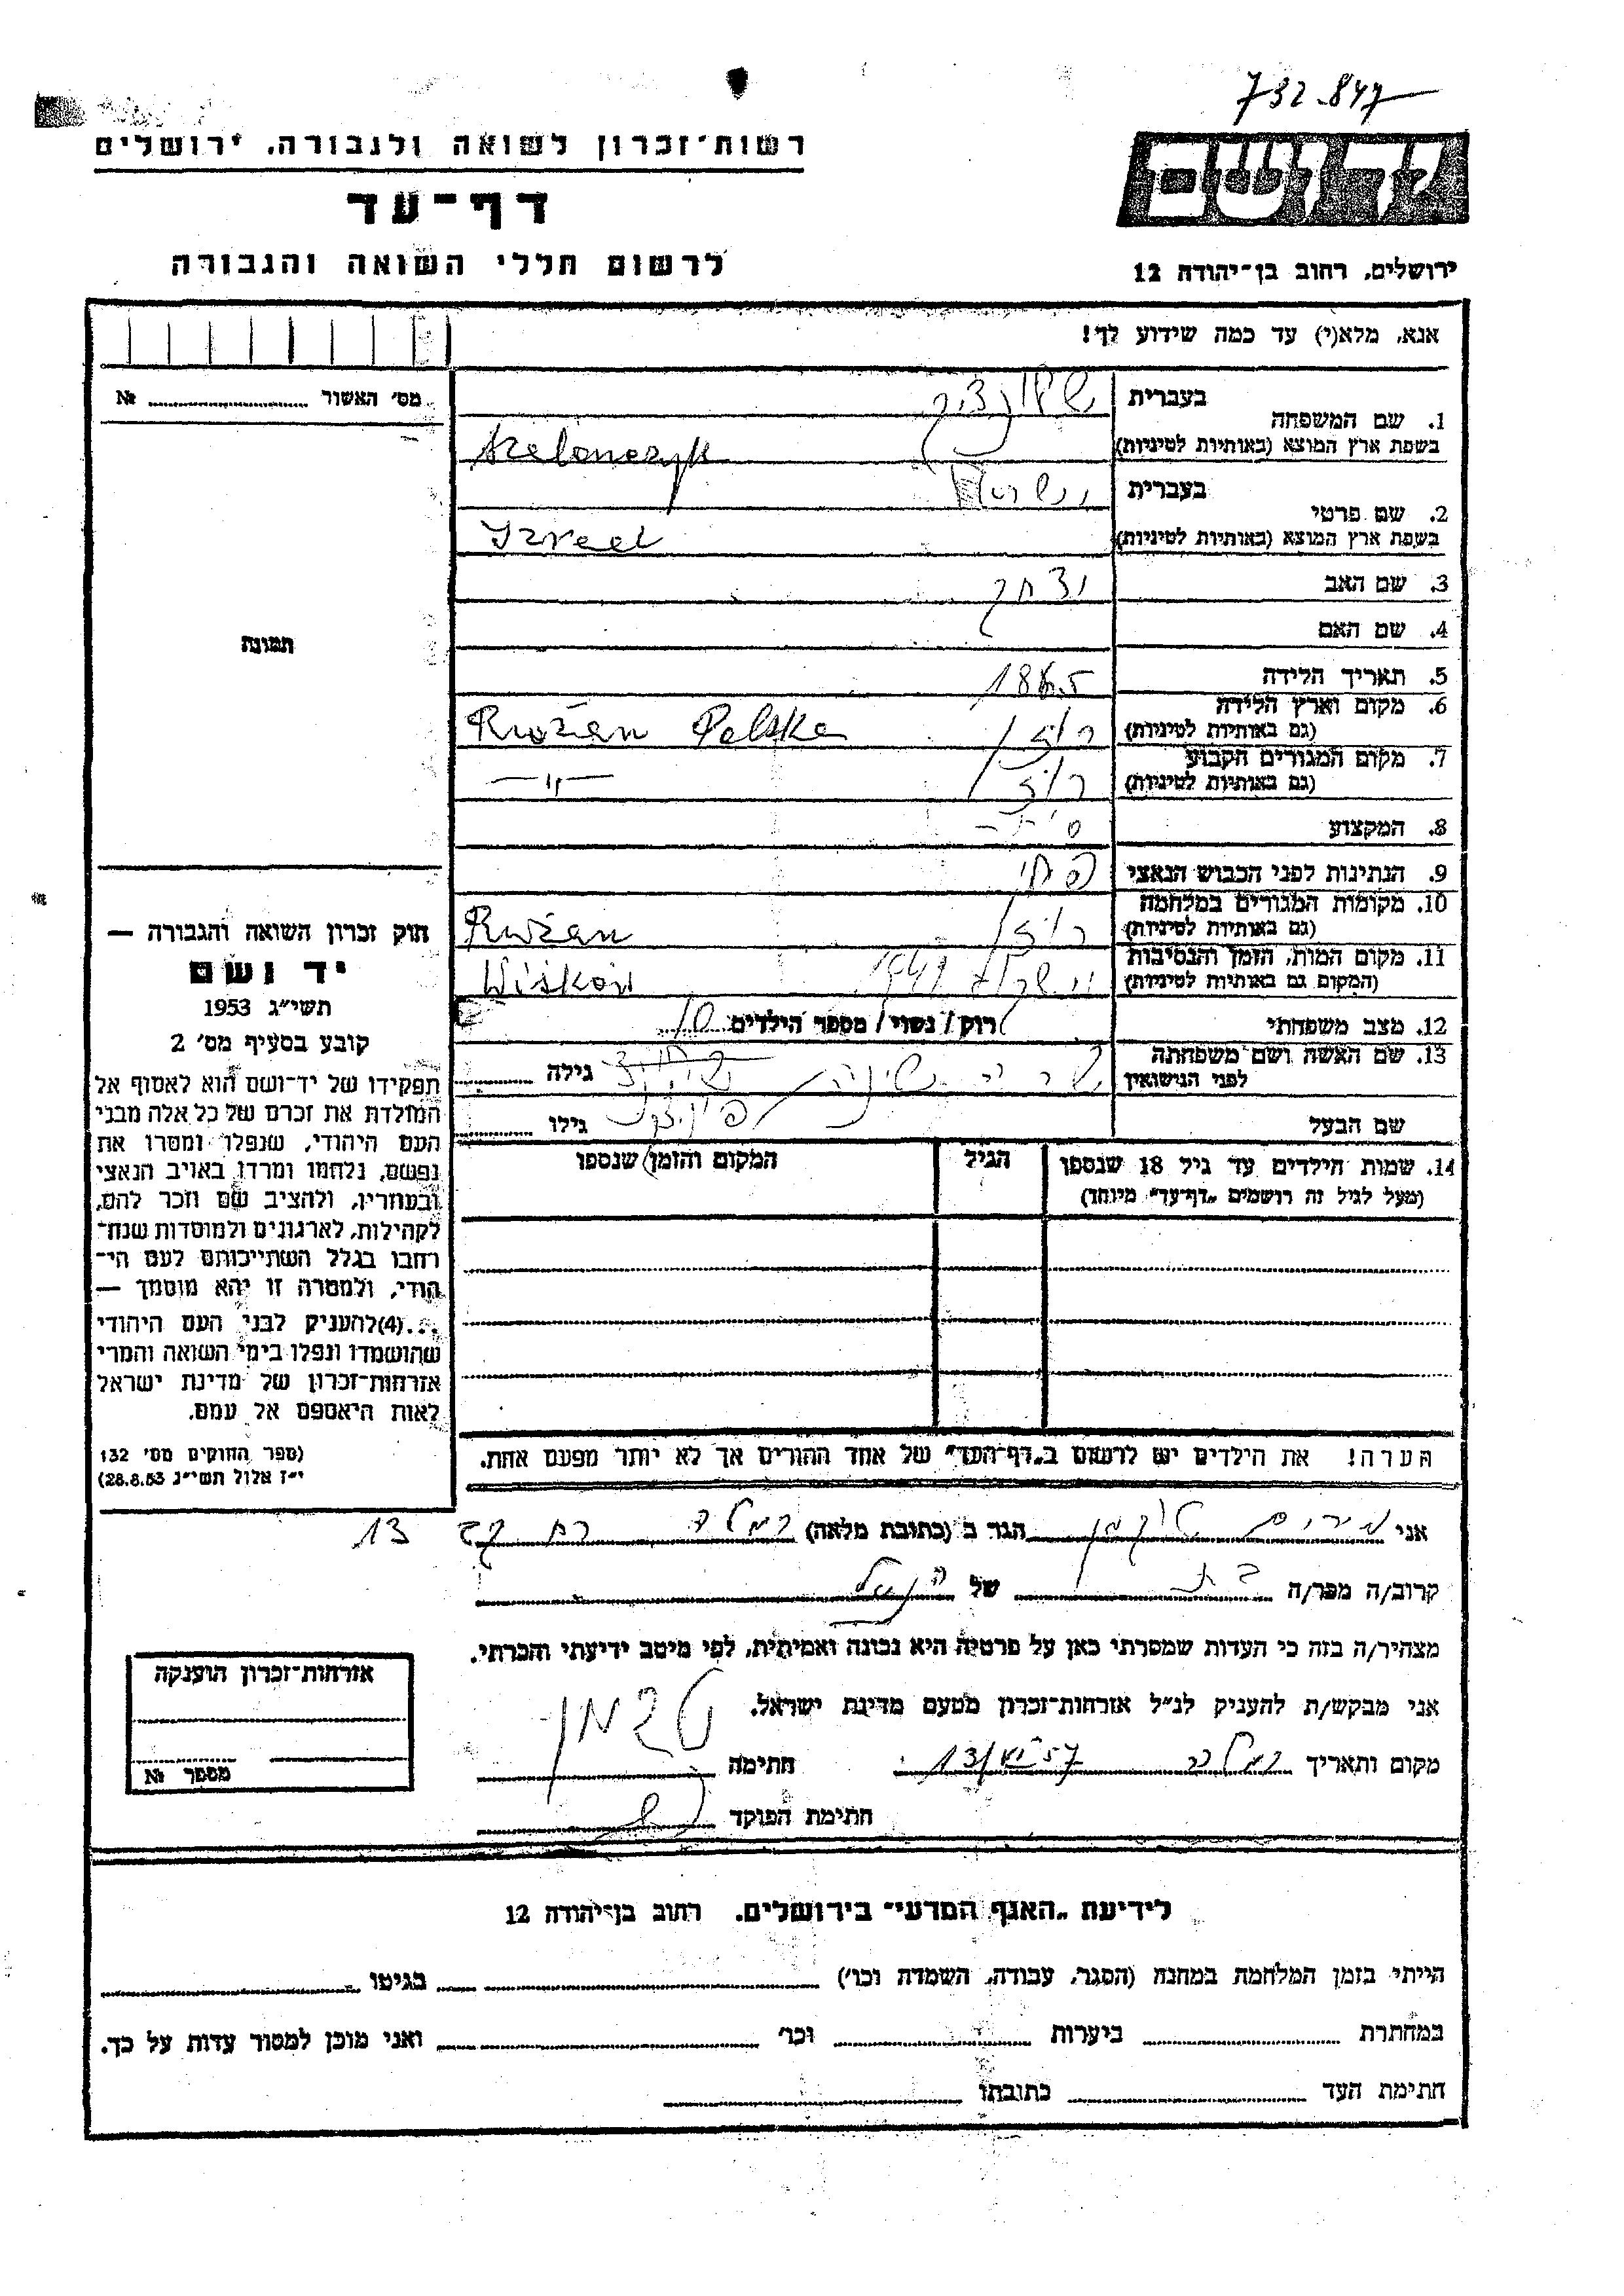 732.847
רשות־זכרון לשואה ולגבורה, ירושלים
יד ושם
דף־עד
לרשום חללי השואה והגבורה
ירושלים, רחוב בן־יהודה 12
אנא, מלא(י) עד כמה שידוע לך!
מס׳ האשור № 
1. שם המשפחה
בעברית
בשפת ארץ המוצא (באותיות לטיניות) Szelonczyk
2. שם פרטי
בעברית ישראל
בשפת ארץ המוצא (באותיות לטיניות) Izrael
3. שם האב יצחק
4. שם האם
5. תאריך הלידה
6. מקום וארץ הלידה
(גם באותיות לטיניות) רוז׳ן Rużan Polska
7. מקום המגורים הקבוע
(גם באותיות לטיניות) רוז׳ן —״—
8. המקצוע
9. הנתינות לפני הכבוש הנאצי
10. מקומות המגורים במלחמה
(גם באותיות לטיניות) רוז׳ן Rużan
11. מקום המות, הזמן והנסיבות
(המקום גם באותיות לטיניות) 1941 Wiśkow
12. מצב משפחתי רוק / נשוי / מספר הילדים 10
13. שם האשה ושם משפחתה
לפני הנישואין שרה גילה
שם הבעל גילו
14. שמות הילדים עד גיל 18 שנספו הגיל המקום והזמן שנספו
(מעל לגיל זה רושמים „דף־עד״ מיוחד)
הערה! את הילדים יש לרשום ב„דף־העד״ של אחד ההורים אך לא יותר מפעם אחת.
תמונה
חוק זכרון השואה והגבורה —
יד ושם
תשי״ג 1953
קובע בסעיף מס׳ 2
תפקידו של יד־ושם הוא לאסוף אל
המולדת את זכרם של כל אלה מבני
העם היהודי, שנפלו ומסרו את
נפשם, נלחמו ומרדו באויב הנאצי
ובעוזריו, ולהציב שם וזכר להם,
לקהילות, לארגונים ולמוסדות שנח־
רבו בגלל השתייכותם לעם הי־
הודי, ולמטרה זו יהא מוסמך —
...(4)להעניק לבני העם היהודי
שהושמדו ונפלו בימי השואה והמרי
אזרחות־זכרון של מדינת ישראל
לאות היאספם אל עמם.
(ספר החוקים מס׳ 132
י״ז אלול תשי״ג 28.8.53)
אני מרים טוקמן הגר ב (כתובת מלאה) רמלה 13
קרוב/ה מכר/ה בת של הנ״ל
מצהיר/ה בזה כי העדות שמסרתי כאן על פרטיה היא נכונה ואמיתית, לפי מיטב ידיעתי והכרתי.
אני מבקש/ת להעניק לנ״ל אזרחות־זכרון מטעם מדינת ישראל.
מקום ותאריך רמלה 13/VI 57 חתימה
חתימת הפוקד
אזרחות־זכרון הוענקה
מספר №
לידיעת „האגף המדעי״ בירושלים. רחוב בן־יהודה 12
הייתי בזמן המלחמה במחנה (הסגר, עבודה, השמדה וכו׳) בגיטו
במחתרת ביערות וכו׳ ואני מוכן למסור עדות על כך.
חתימת העד כתובתו